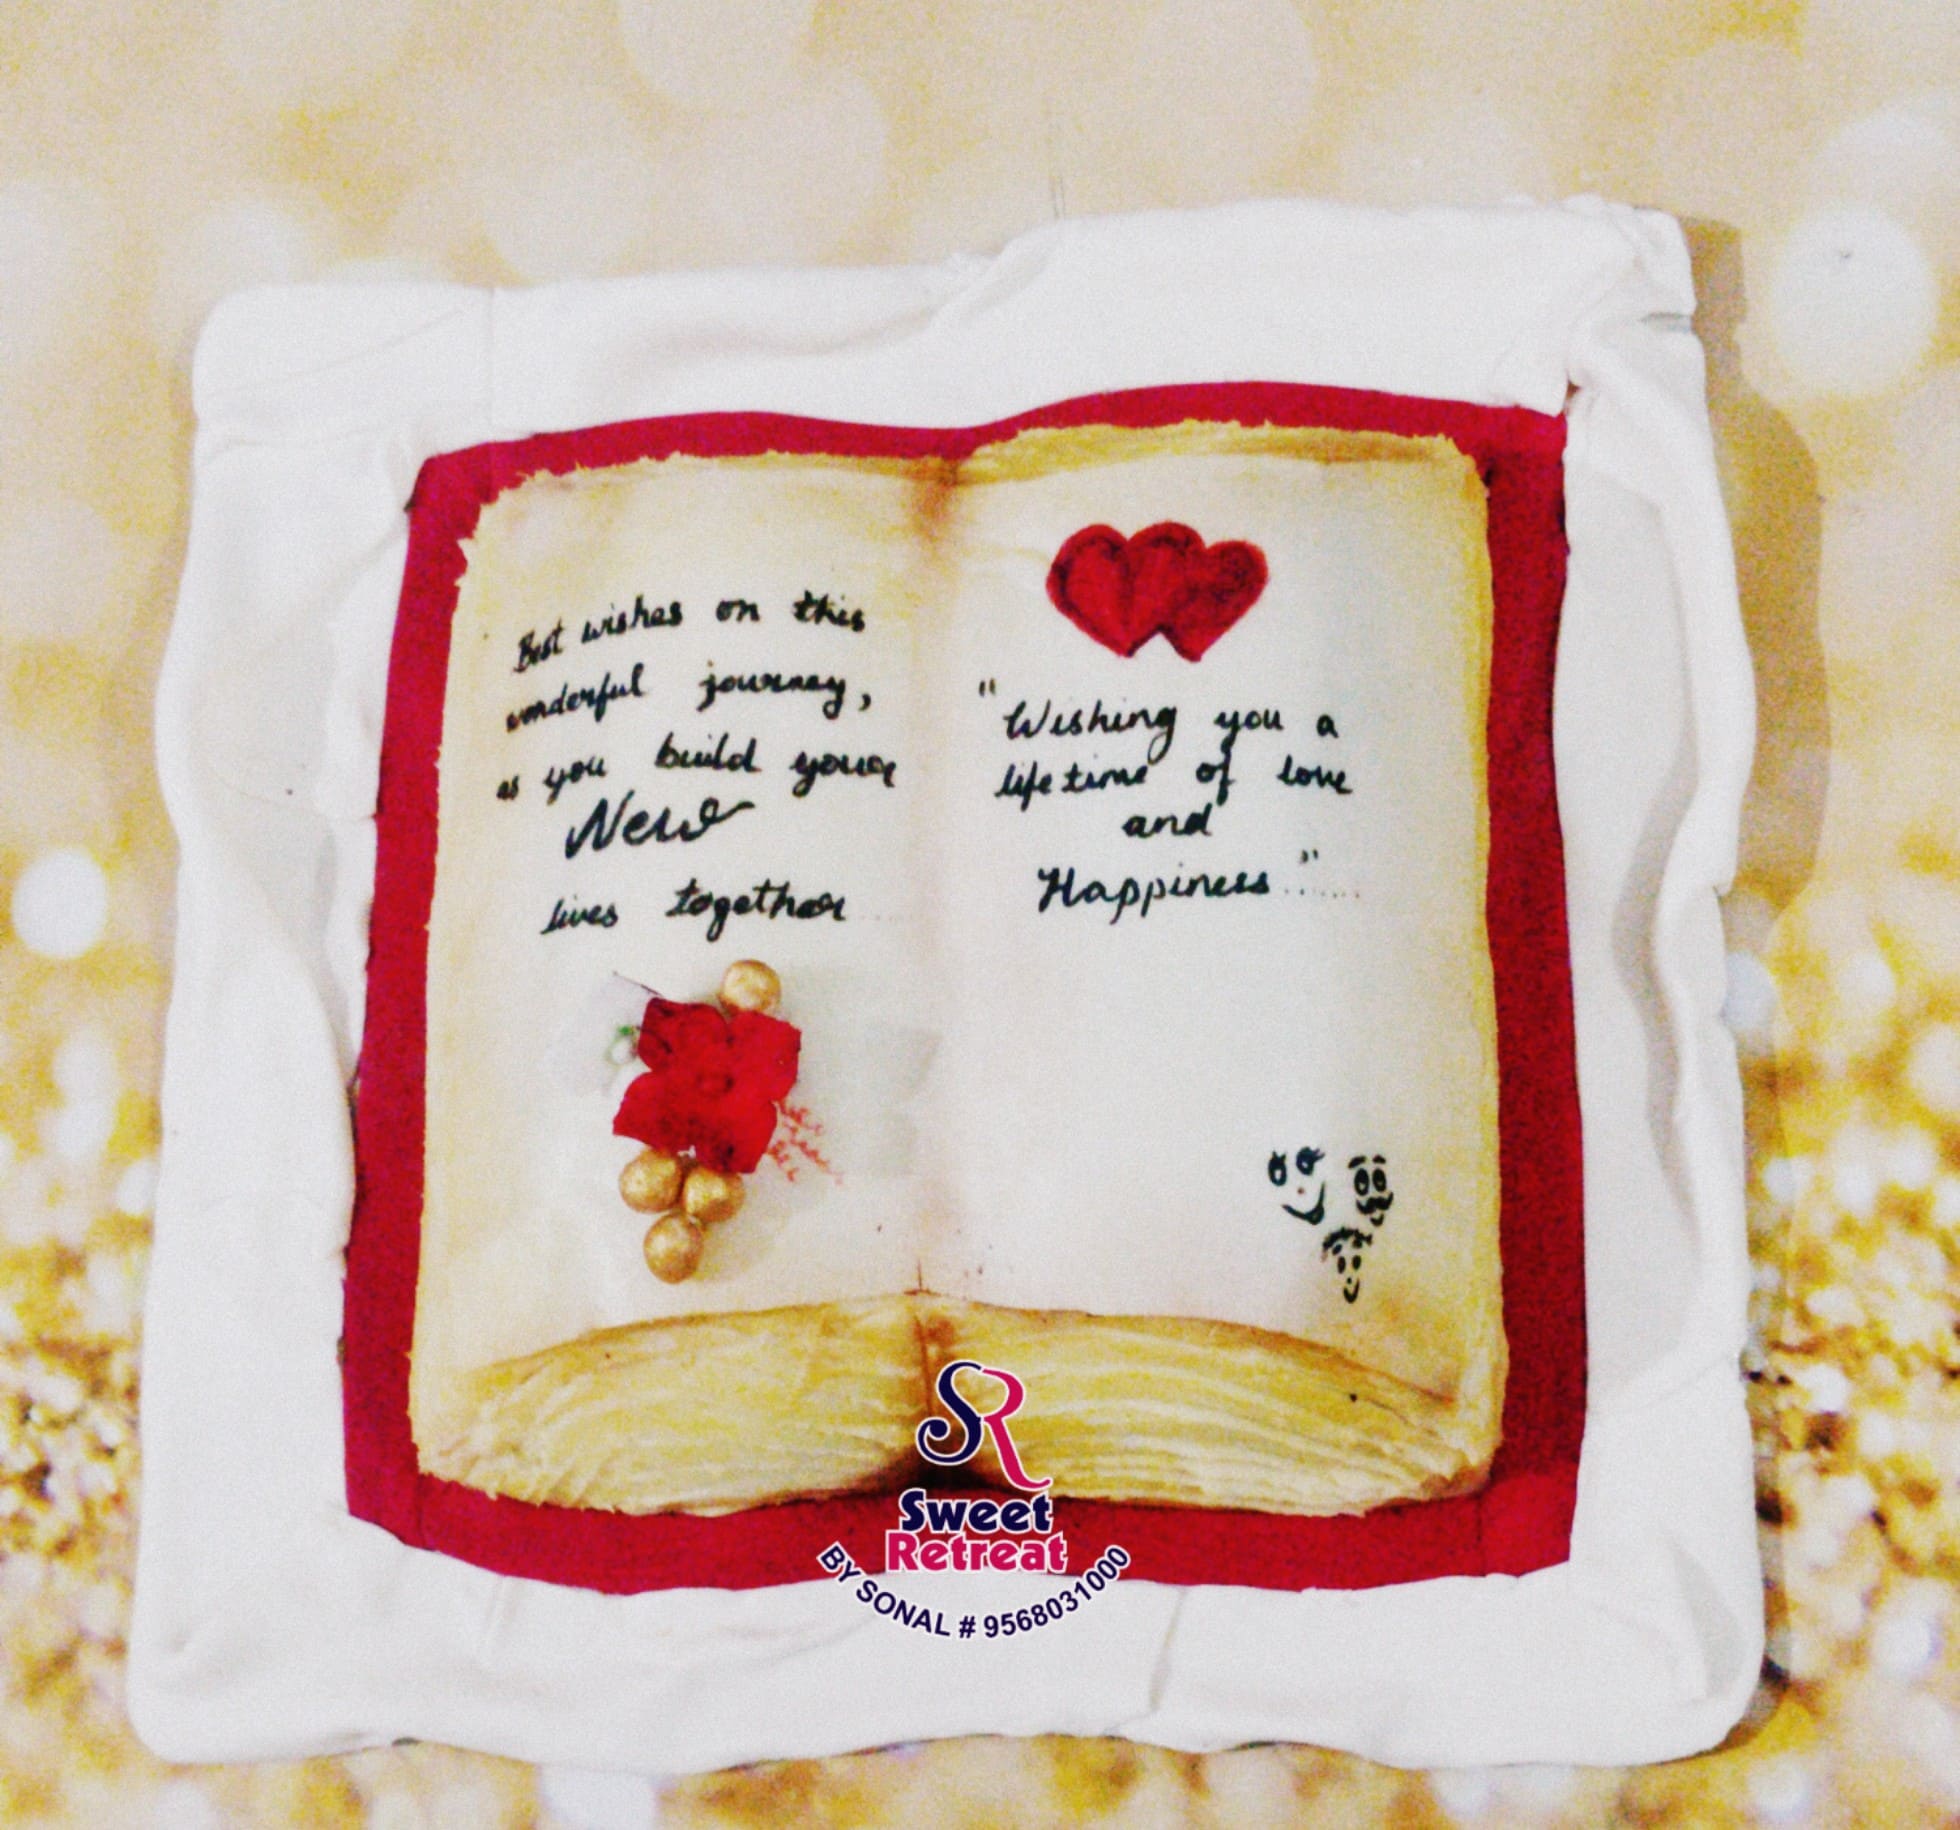 Best wishes on this
wonderful journey,
as you build your
New
lives together
"Wishing you a
life time of love
and
Happiness ......"
SR
Sweet
Retreat
BY SONAL # 9568031000